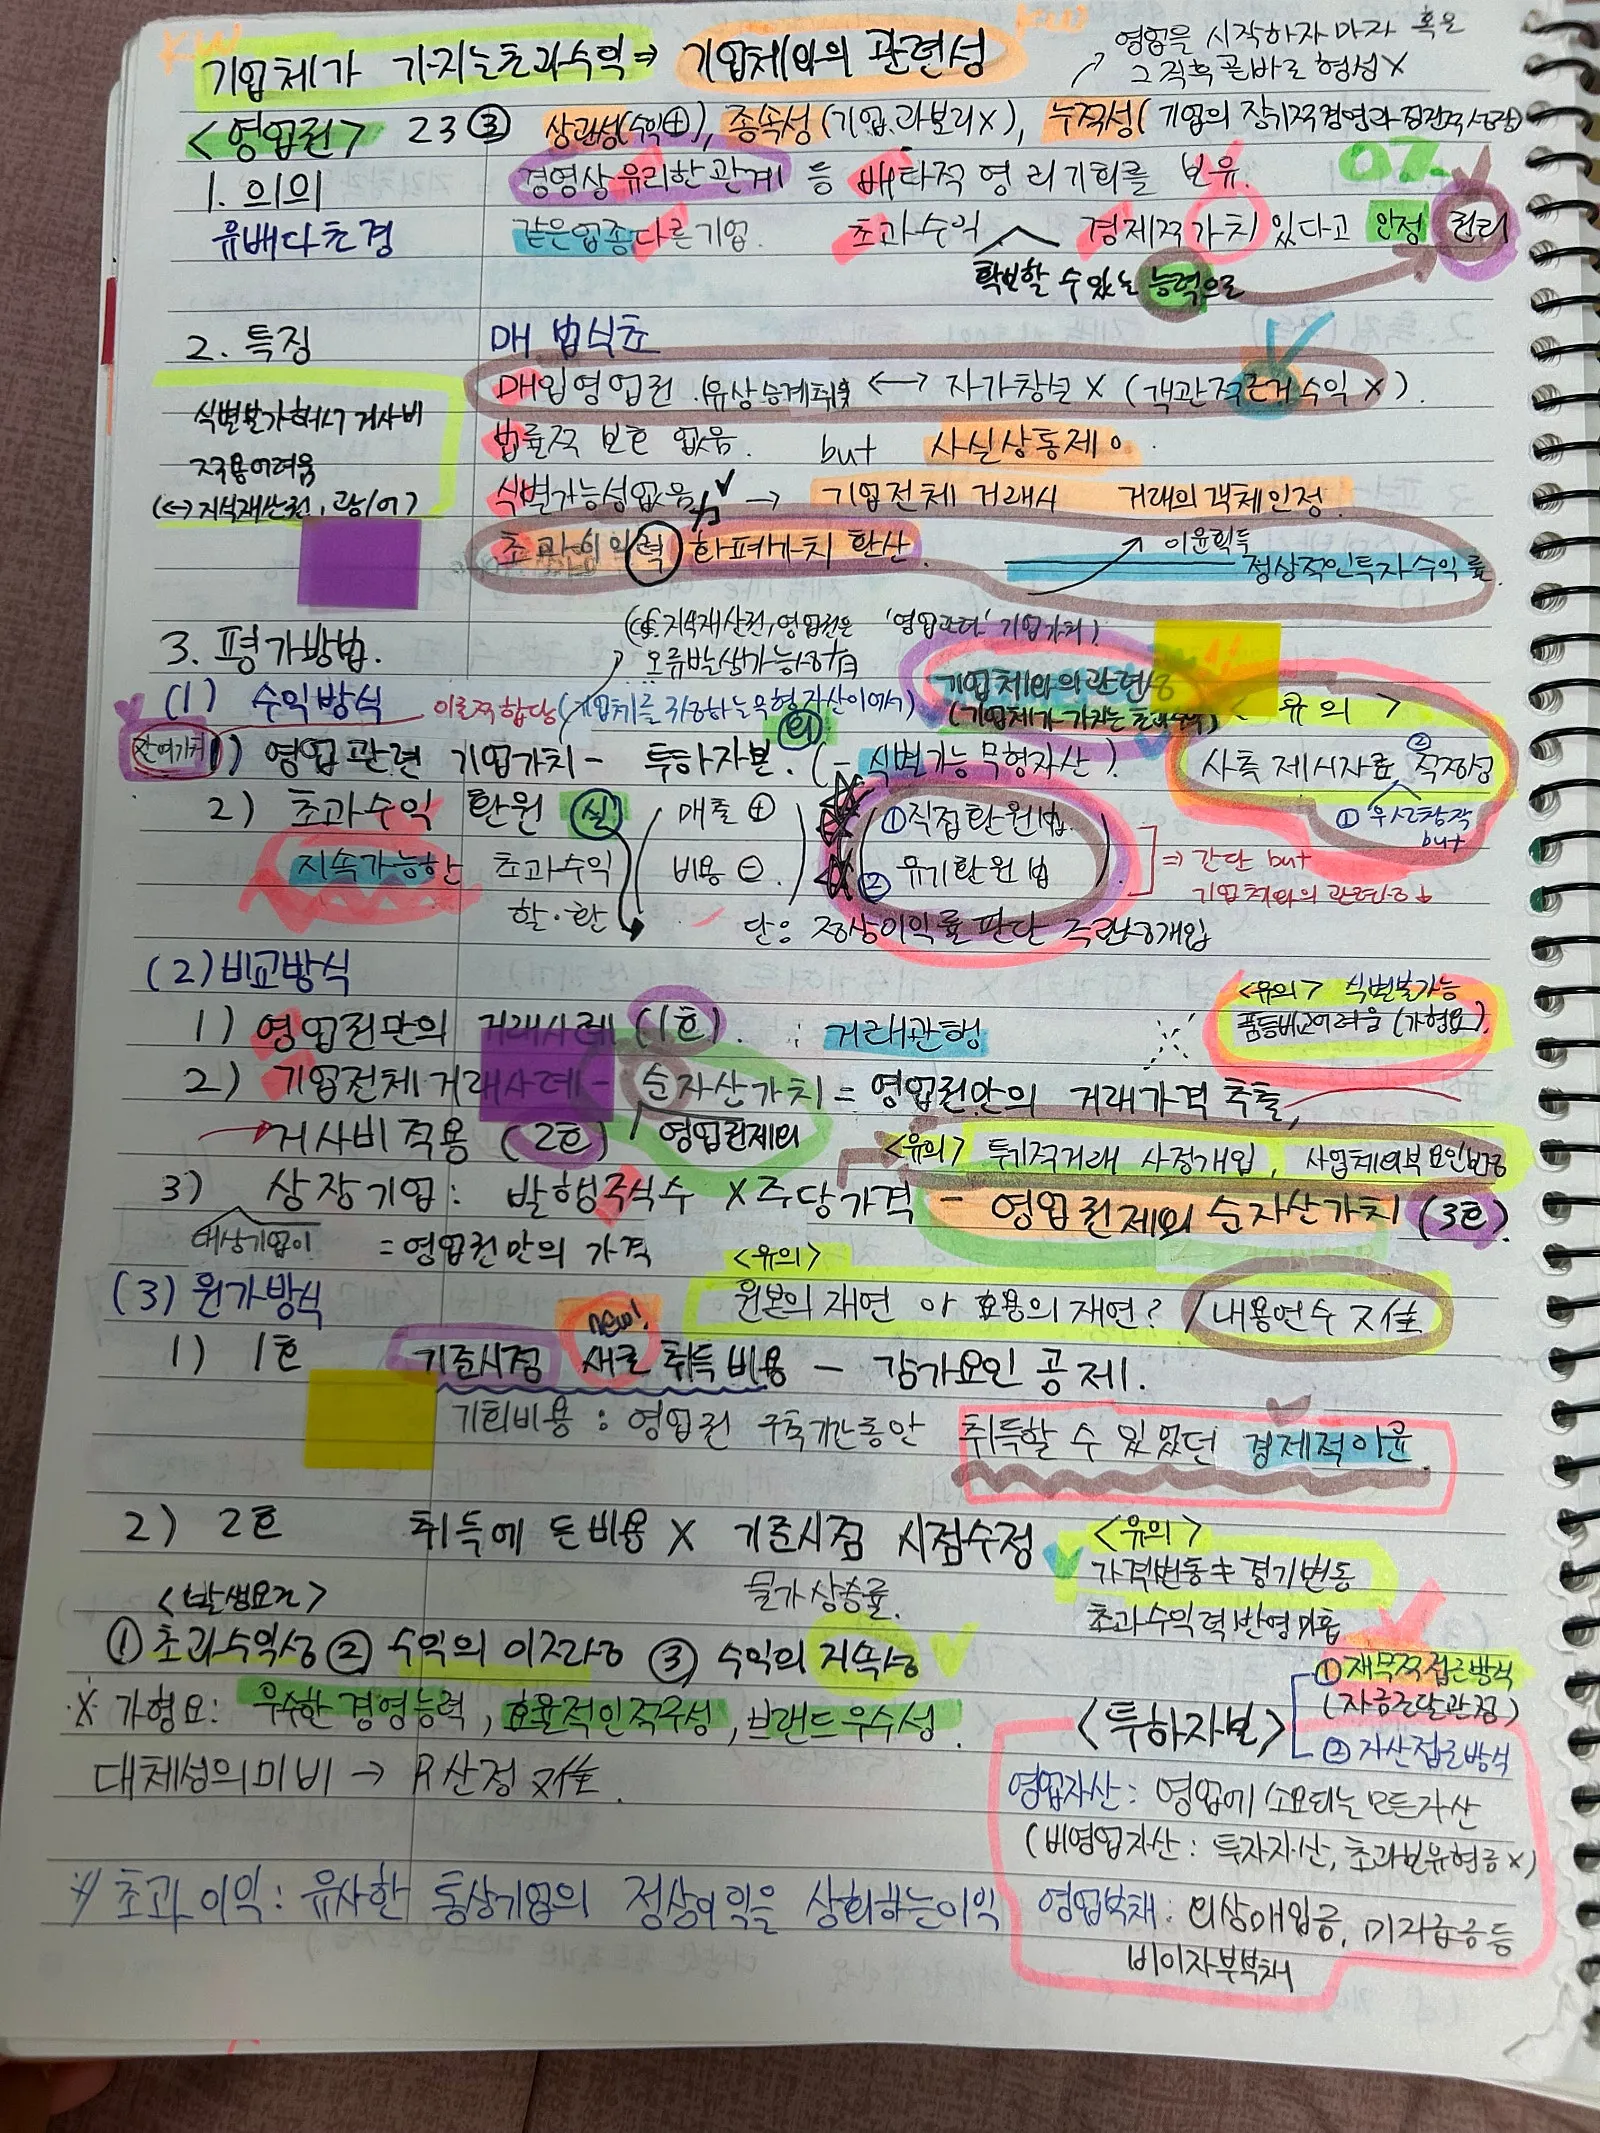 KW
KW
기업체가 가지는초과수익⇒ 기업체와의 관련성
영업을 시작하자 마자 혹은
그 직후 곧바로 형성 X
<영업권> 23 ③ 상관성(수익⊕), 종속성(기업과분리X), 누적성(기업의 장기적경영과 점진적
1. 의의 경영상 유리한 관계 등 배타적 영리기회를 보유.
유배다초경 같은업종다른기업. 초과수익 경제적가치있다고 인정 권리
확보할 수 있는 능력으로
2. 특징 매 법식초
매입영업권 (유상승계취득 ↔ 자가창설 X (객관적근거 수익 X).
식별불가해서 거사비 법률적 보호 없음. but 사실상통제 ㅇ.
적용어려움 식별가능성없음 → 기업전체 거래시 거래의객체인정.
(↔지식재산권, 광,어)
초과이익력 화폐가치 환산. 이윤획득
정상적인투자수익률.
(cf. 지식재산권,영업권은 '영업관련'기업가치)
3. 평가방법. 오류발생가능성有
(1) 수익방식 이론적합당(기업체를 구성하는무형자산이여서)
기업체와의관련성
(기업체가 가지는 초과수익)
<유의>
잔여가치 1) 영업관련 기업가치 - 투하자본. (-식별가능무형자산).
사측 제시자료 ②적정성
①우선창작
but
2) 초과수익 환원 실 (매출⊕ 비용⊖) (①직접환원법. ②유기환원법)
지속가능한 초과수익
할·환
⇒간단 but
기업체와의 관련성↓
단: 정상이익률판단 주관성개입
(2)비교방식
<유의> 식별불가능
품등비교어려움(가형요).
1) 영업권만의 거래사례(1호). : 거래관행
2) 기업전체거래사례 - 순자산가치 = 영업권만의 거래가격 추출,
→거사비적용 (2호) 영업권제외
<유의> 투기적거래 사정개입, 사업체외부요인반영
3) 상장기업: 발행주식수 X 주당가격 - 영업권제외 순자산가치 (3호).
대상기업이 = 영업권만의 가격
<유의>
(3) 원가방식 원본의 재연 or 효용의 재연? / 내용연수 不佳
new!
1) 1호 기준시점 새로 취득비용 - 감가요인 공제.
기회비용: 영업권 구축기간동안 취득할 수 있었던 경제적이윤.
2) 2호 취득에 든비용 X 기준시점 시점수정
물가상승률.
<유의>
가격변동≠경기변동
초과수익력반영미흡
<발생요건>
①초과수익성 ②수익의 이전성 ③수익의 지속성
※가형요: 우수한경영능력, 효율적인적구성, 브랜드우수성.
대체성의미비 → R산정 不佳.
<투하자본>
①재무적접근방식
(자금조달관점)
②자산접근방식
영업자산: 영업에 소요되는 모든자산
(비영업자산: 투자자산, 초과보유현금X)
※초과이익: 유사한 통상기업의 정상이익을 상회하는이익
영업부채: 외상매입금, 미지급금등
비이자부부채